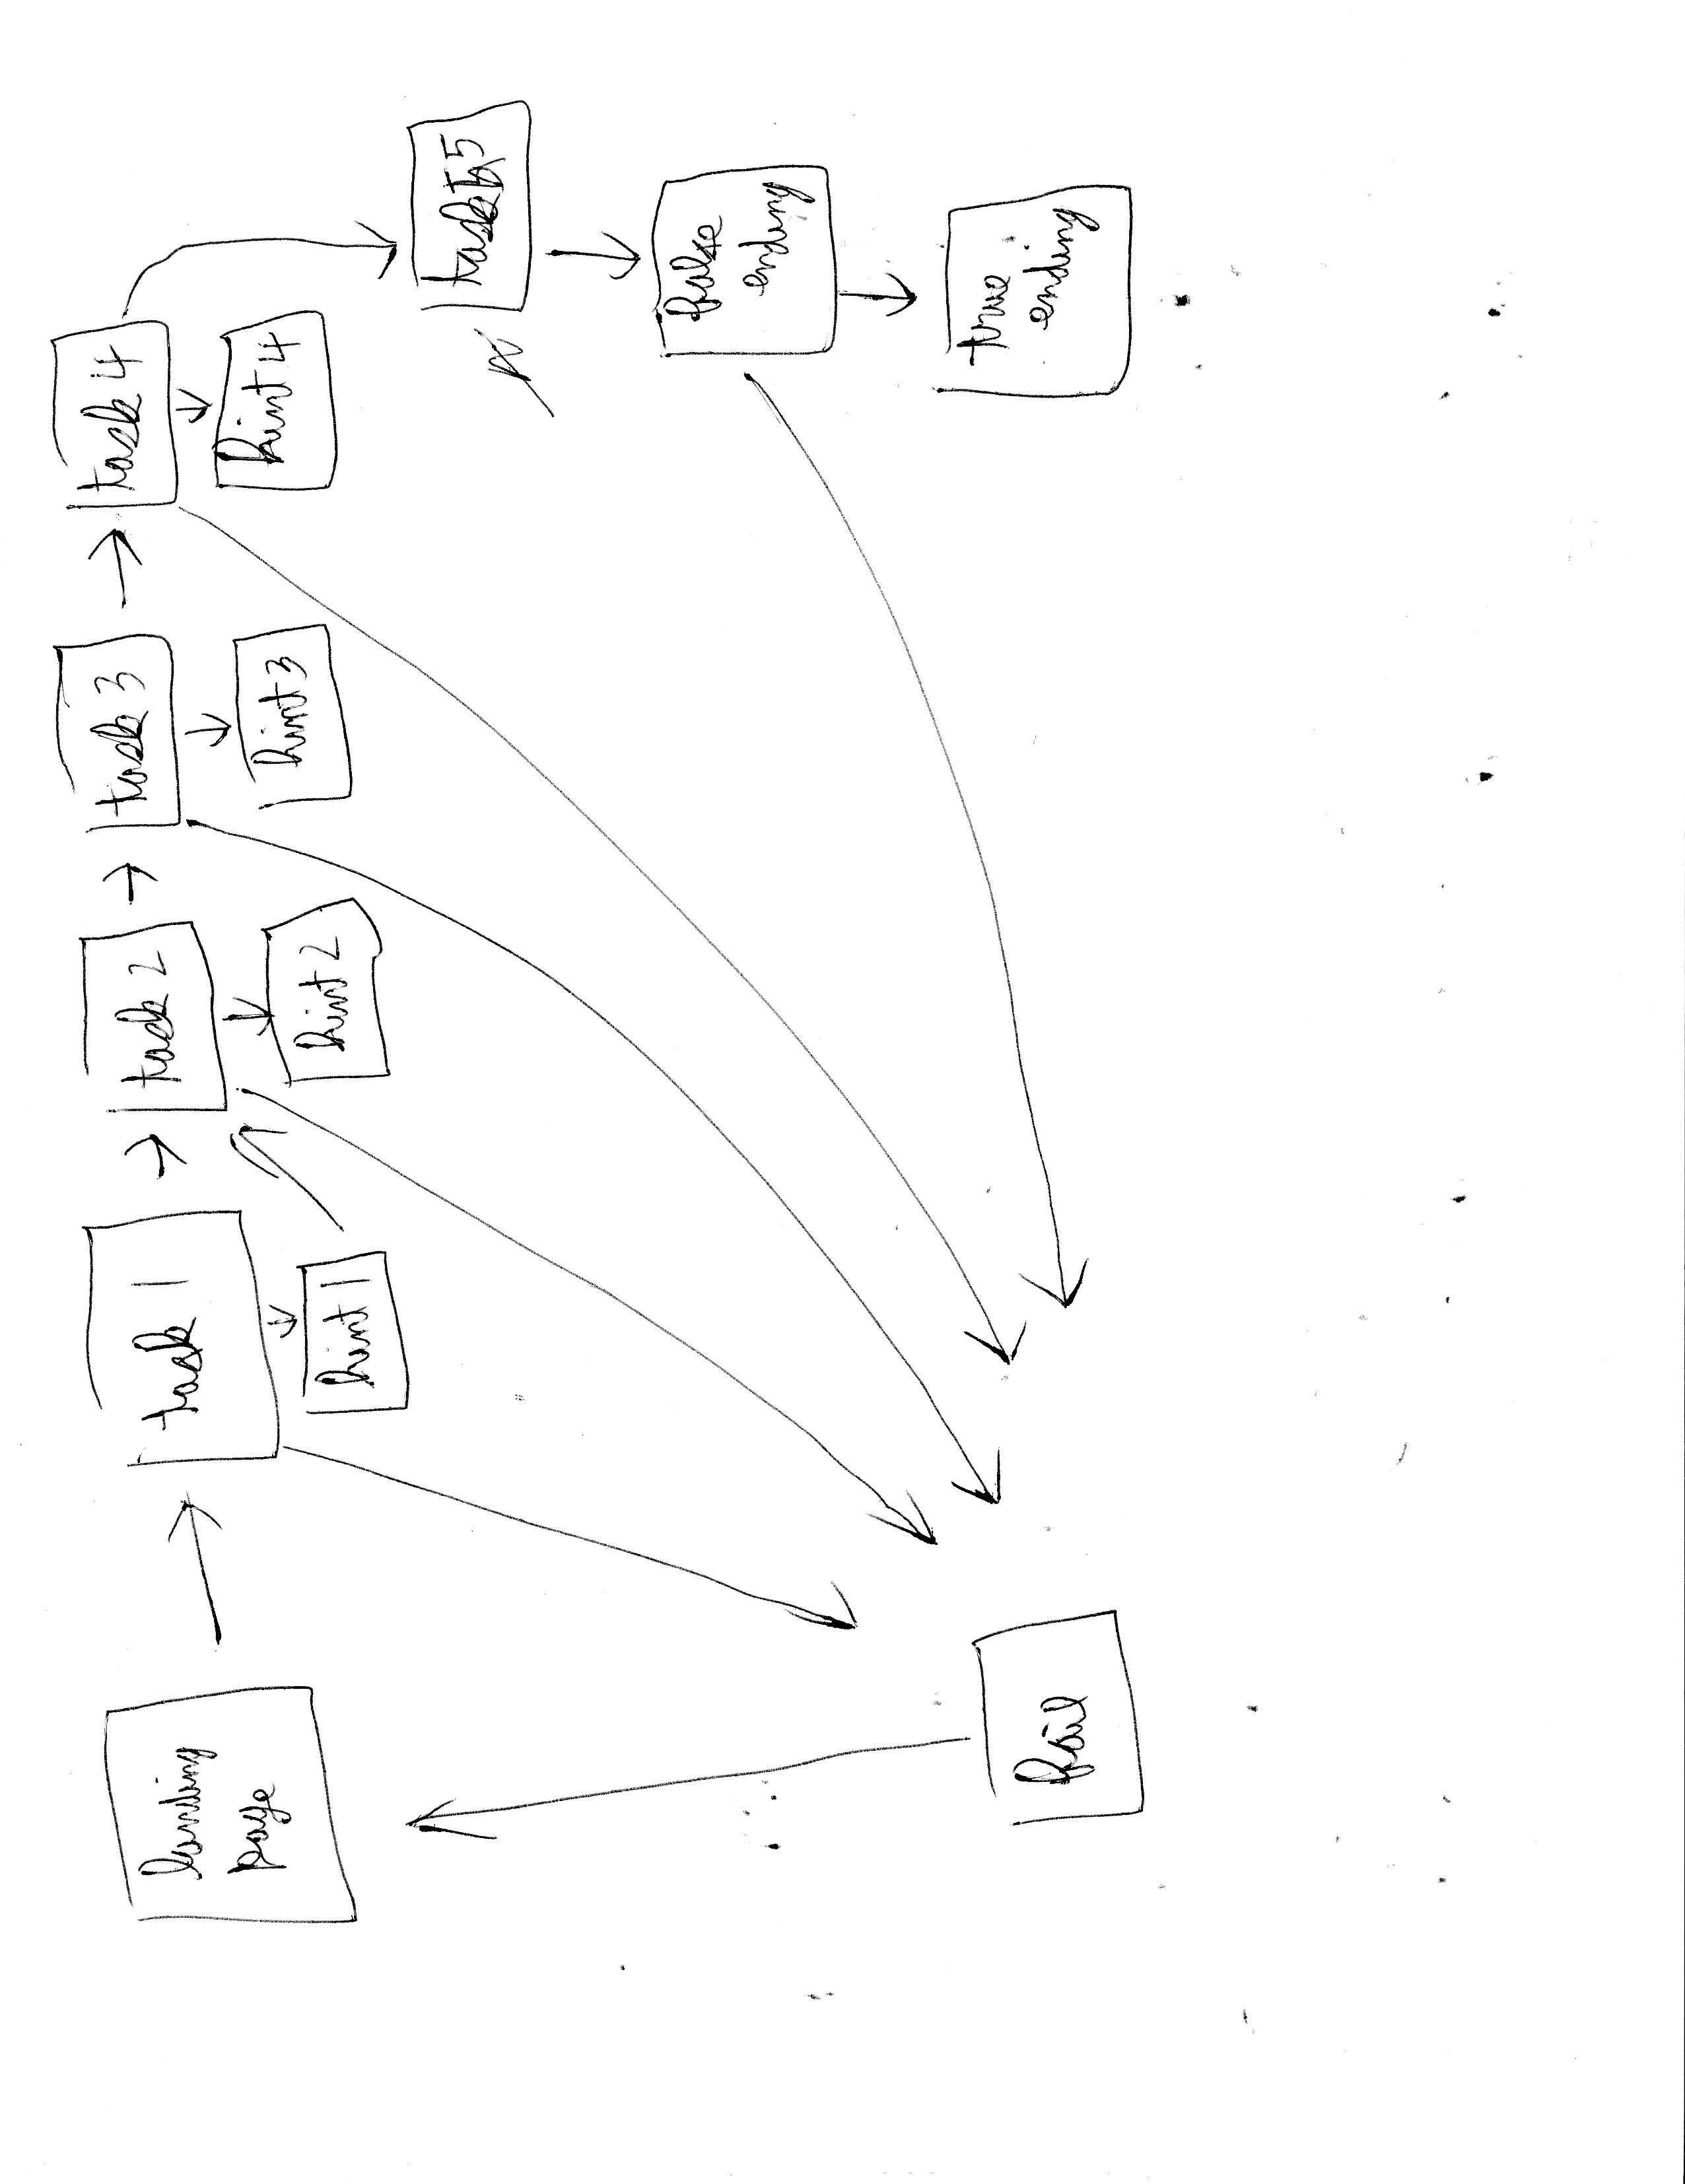 landing
page
task 1
hint 1
task 2
hint 2
task 3
hint 3
task 4
hint 4
task 5
false
ending
true
ending
fail